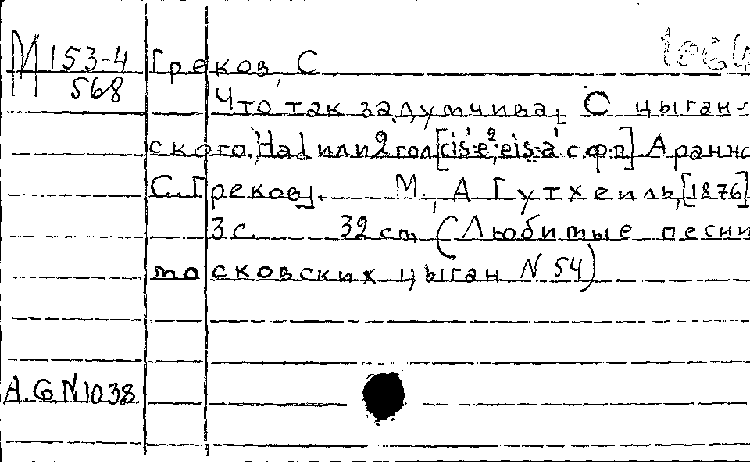 М 153-4
568
Греков, С
Что так задумчива, С цыган-
ского. На 1 или 2 гол [cis¹-e², eis-a¹ с ф-п] Аранж
С. Греков]. М., А Гутхейль, [1876]
3 с. 32 cm (Любимые песни
московских цыган N 54)
А.G N 1038